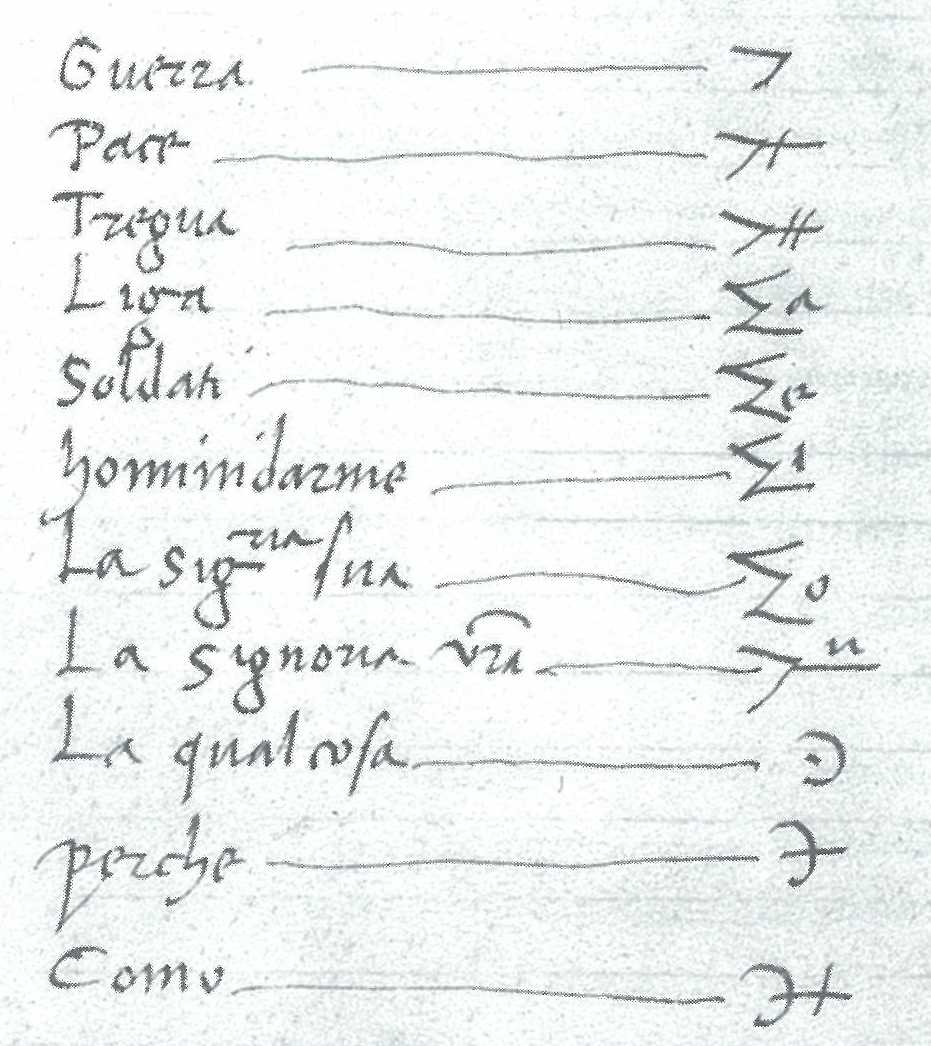 Guerra
Pace
Tregua
Liga
Soldati
homindarme
La sig.ria sua
La signoria vra
La qual cosa
perche
Como